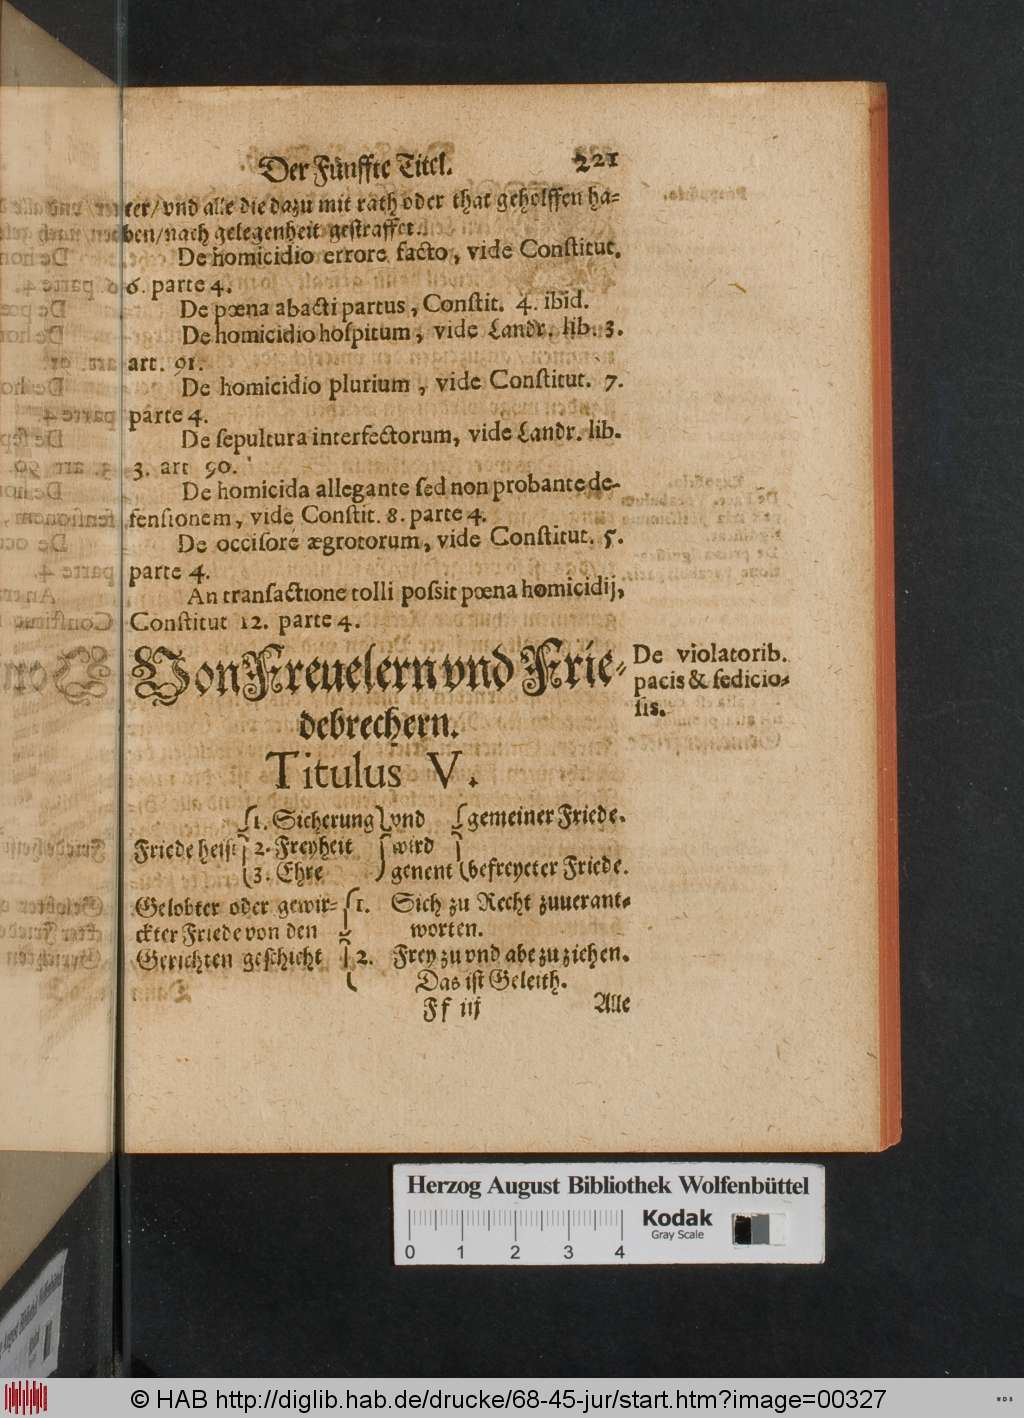 Der Fünffte Titel. 221
ter/ vnd alle die dazu mit rath oder that geholffen ha-
ben/ nach gelegenheit gestraffet.
De homicidio errore facto, vide Constitut.
6. parte 4.
De pœna abacti partus, Constit. 4. ibid.
De homicidio hospitum, vide Landr. lib. 3.
art. 91.
De homicidio plurium, vide Constitut. 7.
parte 4.
De sepultura interfectorum, vide Landr. lib.
3. art 90.
De homicida allegante sed non probante de-
fensionem, vide Constit. 8. parte 4.
De occisore ægrotorum, vide Constitut. 5.
parte 4.
An transactione tolli possit pœna homicidij,
Constitut 12. parte 4.
Von Freuelern vnd Frie-
debrechern.
De violatorib.
pacis & sedicio-
sis.
Titulus V.
1. Sicherung vnd gemeiner Friede.
Friede heist 2. Freyheit wird
3. Ehre genent befreyeter Friede.
Gelobter oder gewir- 1. Sich zu Recht zuuerant-
ckter Friede von den worten.
Gerichten geschicht 2. Frey zu vnd abe zu ziehen.
Das ist Geleith.
Ff iij Alle
Herzog August Bibliothek Wolfenbüttel
Kodak
Gray Scale
0 1 2 3 4
© HAB http://diglib.hab.de/drucke/68-45-jur/start.htm?image=00327